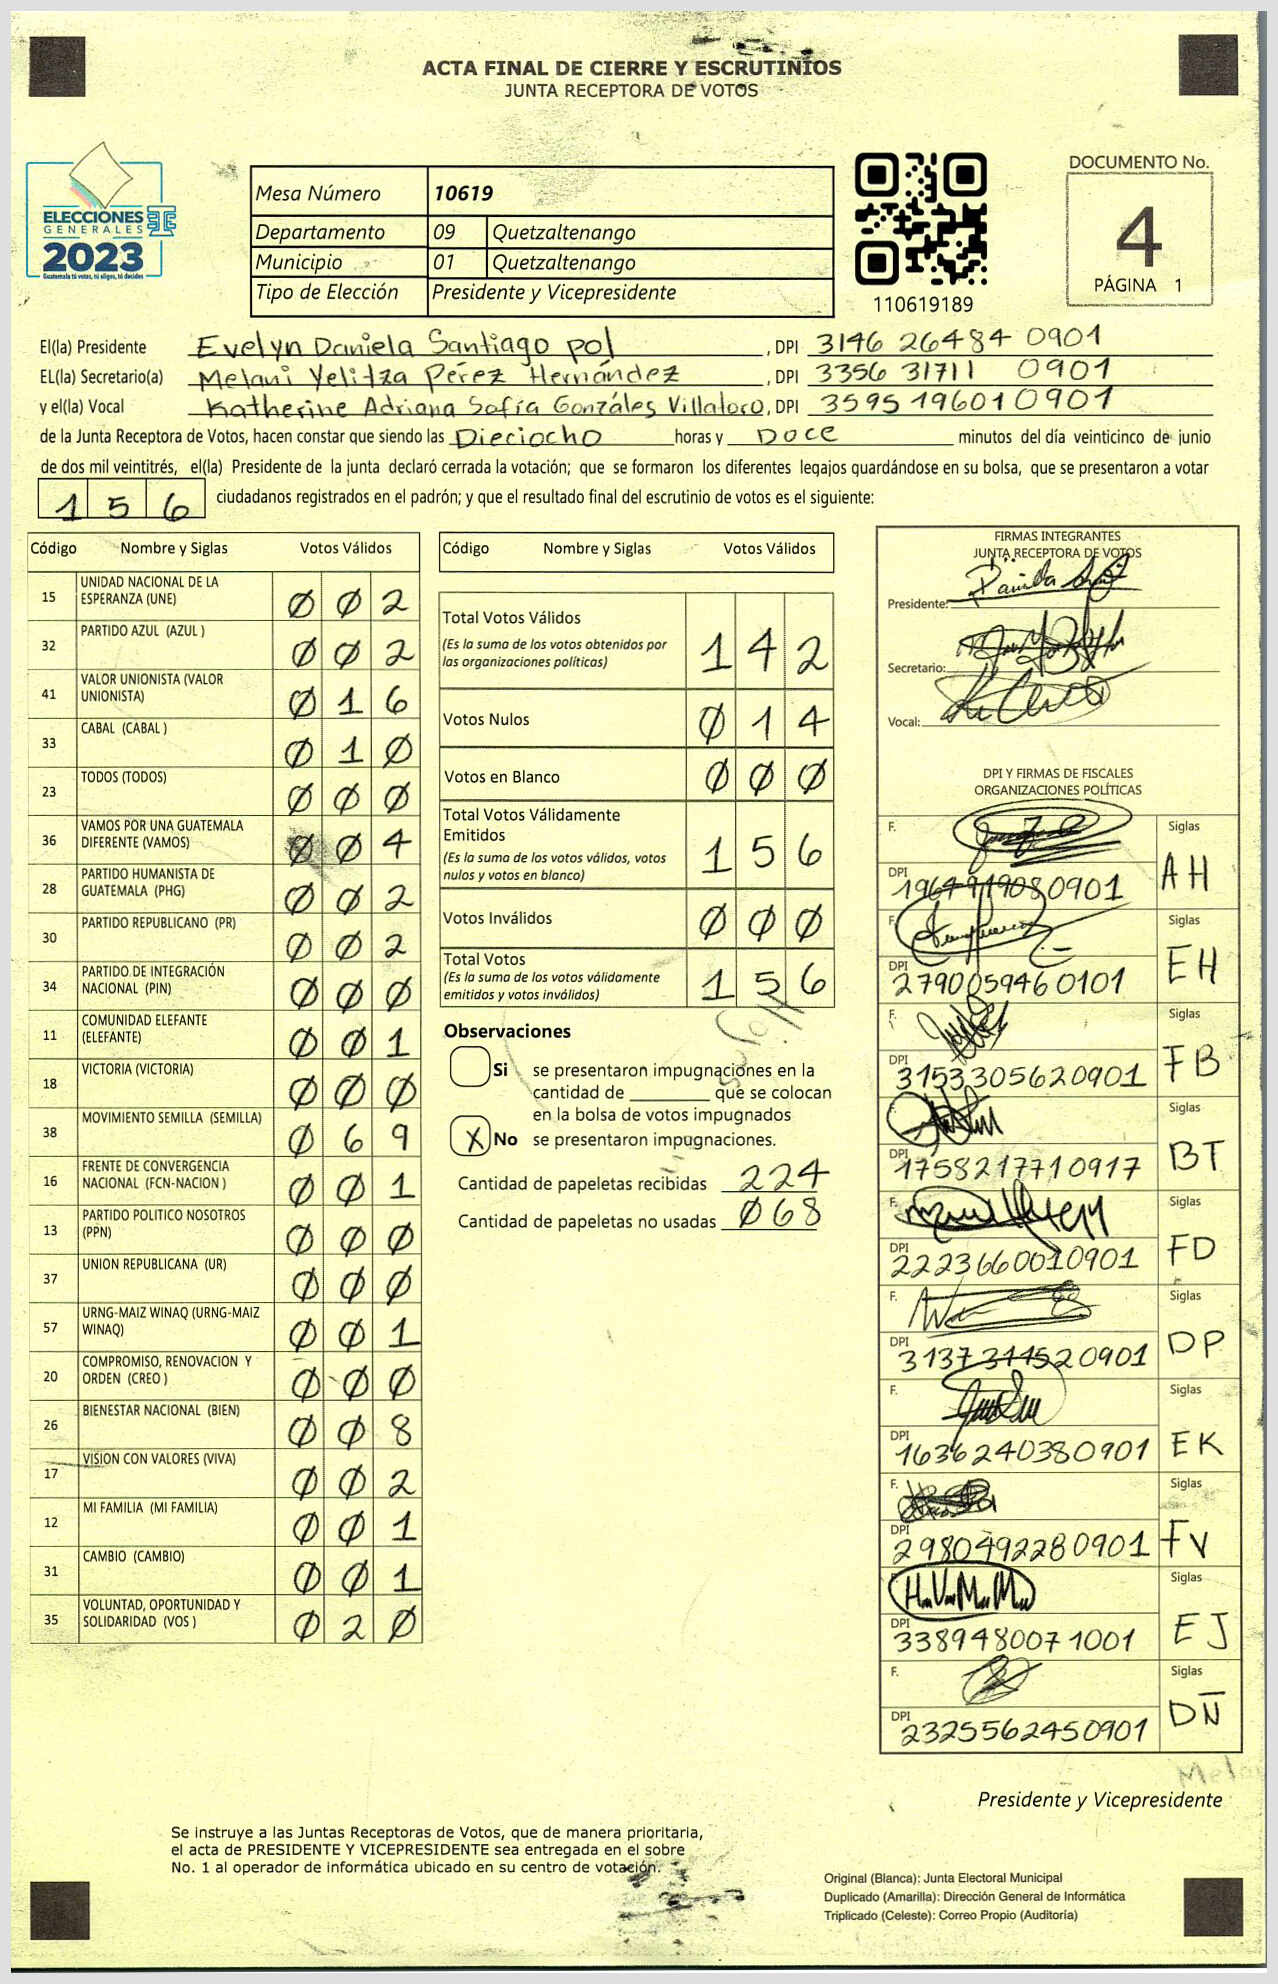 ACTA FINAL DE CIERRE Y ESCRUTINIOS
JUNTA RECEPTORA DE VOTOS
ELECCIONES
GENERALES
2023
Guatemala tú votas, tú eliges, tú decides
Mesa Número 10619
Departamento 09 Quetzaltenango
Municipio 01 Quetzaltenango
Tipo de Elección Presidente y Vicepresidente
110619189
DOCUMENTO No.
4
PÁGINA 1
El(la) Presidente Evelyn Daniela Santiago pol, DPI 3146 26484 0901
EL(la) Secretario(a) Melani Yelitza Pérez Hernández, DPI 3356 31711 0901
y el(la) Vocal Katherine Adriana Sofía Gonzáles Villatoro, DPI 3595 19601 0901
de la Junta Receptora de Votos, hacen constar que siendo las Dieciocho horas y Doce minutos del día veinticinco de junio
de dos mil veintitrés, el(la) Presidente de la junta declaró cerrada la votación; que se formaron los diferentes legajos guardándose en su bolsa, que se presentaron a votar
156 ciudadanos registrados en el padrón; y que el resultado final del escrutinio de votos es el siguiente:
Código Nombre y Siglas Votos Válidos
15 UNIDAD NACIONAL DE LA ESPERANZA (UNE) 0 0 2
32 PARTIDO AZUL (AZUL ) 0 0 2
41 VALOR UNIONISTA (VALOR UNIONISTA) 0 1 6
33 CABAL (CABAL ) 0 1 0
23 TODOS (TODOS) 0 0 0
36 VAMOS POR UNA GUATEMALA DIFERENTE (VAMOS) 0 0 4
28 PARTIDO HUMANISTA DE GUATEMALA (PHG) 0 0 2
30 PARTIDO REPUBLICANO (PR) 0 0 2
34 PARTIDO DE INTEGRACIÓN NACIONAL (PIN) 0 0 0
11 COMUNIDAD ELEFANTE (ELEFANTE) 0 0 1
18 VICTORIA (VICTORIA) 0 0 0
38 MOVIMIENTO SEMILLA (SEMILLA) 0 6 9
16 FRENTE DE CONVERGENCIA NACIONAL (FCN-NACION ) 0 0 1
13 PARTIDO POLITICO NOSOTROS (PPN) 0 0 0
37 UNION REPUBLICANA (UR) 0 0 0
57 URNG-MAIZ WINAQ (URNG-MAIZ WINAQ) 0 0 1
20 COMPROMISO, RENOVACION Y ORDEN (CREO ) 0 0 0
26 BIENESTAR NACIONAL (BIEN) 0 0 8
17 VISION CON VALORES (VIVA) 0 0 2
12 MI FAMILIA (MI FAMILIA) 0 0 1
31 CAMBIO (CAMBIO) 0 0 1
35 VOLUNTAD, OPORTUNIDAD Y SOLIDARIDAD (VOS ) 0 2 0
Código Nombre y Siglas Votos Válidos
Total Votos Válidos 1 4 2
(Es la suma de los votos obtenidos por
las organizaciones políticas)
Votos Nulos 0 1 4
Votos en Blanco 0 0 0
Total Votos Válidamente
Emitidos 1 5 6
(Es la suma de los votos válidos, votos
nulos y votos en blanco)
Votos Inválidos 0 0 0
Total Votos 1 5 6
(Es la suma de los votos válidamente
emitidos y votos inválidos)
Observaciones
Si se presentaron impugnaciones en la
cantidad de ________ que se colocan
en la bolsa de votos impugnados
X No se presentaron impugnaciones.
Cantidad de papeletas recibidas 224
Cantidad de papeletas no usadas 068
FIRMAS INTEGRANTES
JUNTA RECEPTORA DE VOTOS
Presidente:
Secretario:
Vocal:
DPI Y FIRMAS DE FISCALES
ORGANIZACIONES POLÍTICAS
F. Siglas
DPI 1964919080901 AH
F. Siglas
DPI 2790059460101 EH
F. Siglas
DPI 3153305620901 FB
F. Siglas
DPI 1758217710917 BT
F. Siglas
DPI 2223660010901 FD
F. Siglas
DPI 3137314520901 DP
F. Siglas
DPI 1636240380901 EK
F. Siglas
DPI 2980492280901 FV
F. H.V.M.M. Siglas
DPI 3389480071001 EJ
F. Siglas
DPI 2325562450901 DN
Presidente y Vicepresidente
Se instruye a las Juntas Receptoras de Votos, que de manera prioritaria,
el acta de PRESIDENTE Y VICEPRESIDENTE sea entregada en el sobre
No. 1 al operador de informática ubicado en su centro de votación.
Original (Blanca): Junta Electoral Municipal
Duplicado (Amarilla): Dirección General de Informática
Triplicado (Celeste): Correo Propio (Auditoría)